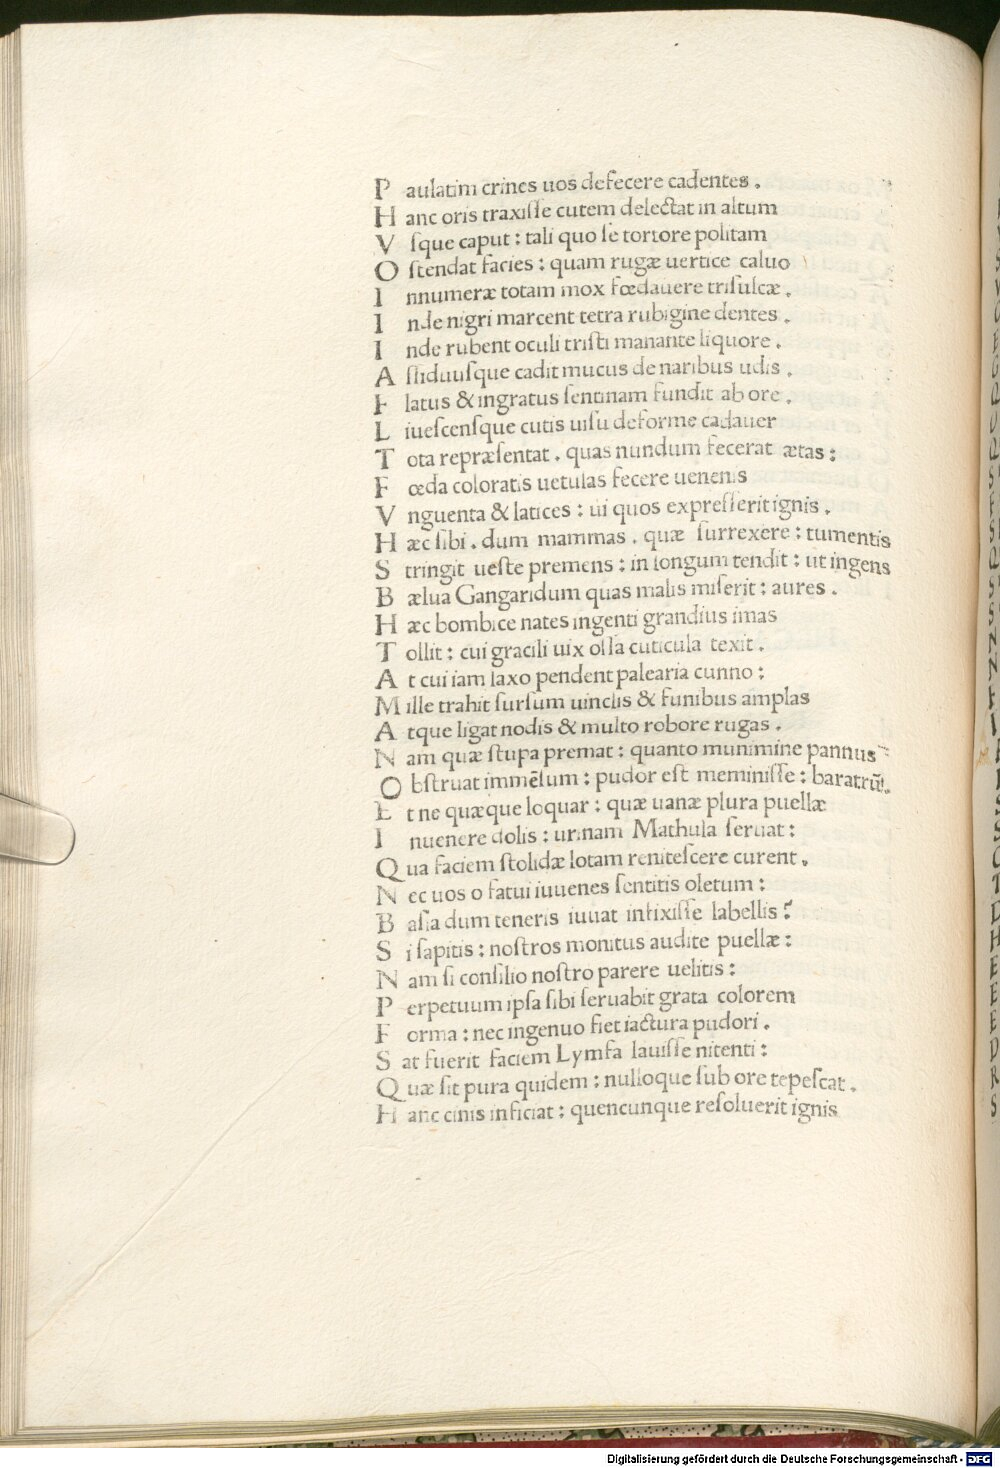 P aulatim crines uos defecere cadentes .
H anc oris traxiſſe cutem delectat in altum
V ſque caput : tali quo ſe tortore politam
O ſtendat facies : quam rugæ uertice caluo
I nnumeræ totam mox fœdauere triſulcæ .
I nde nigri marcent tetra rubigine dentes .
I nde rubent oculi triſti manante liquore .
A ſſiduuſque cadit mucus de naribus udis .
F latus & ingratus ſentinam fundit ab ore .
L iueſcenſque cutis uiſu deforme cadauer
T ota repræſentat . quas nundum fecerat ætas :
F œda coloratis uetulas fecere uenenis
V nguenta & latices : ui quos expreſſerit ignis .
H æc ſibi . dum mammas . quæ ſurrexere : tumentis
S tringit ueſte premens : in longum tendit : ut ingens
B ælua Gangaridum quas malis miſerit : aures .
H æc bombice nates ingenti grandius imas
T ollit : cui gracili uix olla cuticula texit .
A t cui iam laxo pendent palearia cunno :
M ille trahit ſurſum uinclis & funibus amplas
A tque ligat nodis & multo robore rugas .
N am quæ ſtupa premat : quanto munimine pannus
O bſtruat immēſum : pudor eſt meminiſſe : baratrū .
E t ne quæque loquar : quæ uanæ plura puellæ
I nuenere dolis : urinam Mathula ſeruat :
Q ua faciem ſtolidæ lotam reniteſcere curent .
N ec uos o fatui iuuenes ſentitis oletum :
B aſia dum teneris iuuat infixiſſe labellis ?
S i ſapitis : noſtros monitus audite puellæ :
N am ſi conſilio noſtro parere uelitis :
P erpetuum ipſa ſibi ſeruabit grata colorem
F orma : nec ingenuo fiet iactura pudori .
S at fuerit faciem Lymfa lauiſſe nitenti :
Q uæ ſit pura quidem : nulloque ſub ore tepeſcat .
H anc cinis inficiat : quencunque reſoluerit ignis
Digitalisierung gefördert durch die Deutsche Forschungsgemeinschaft - DFG